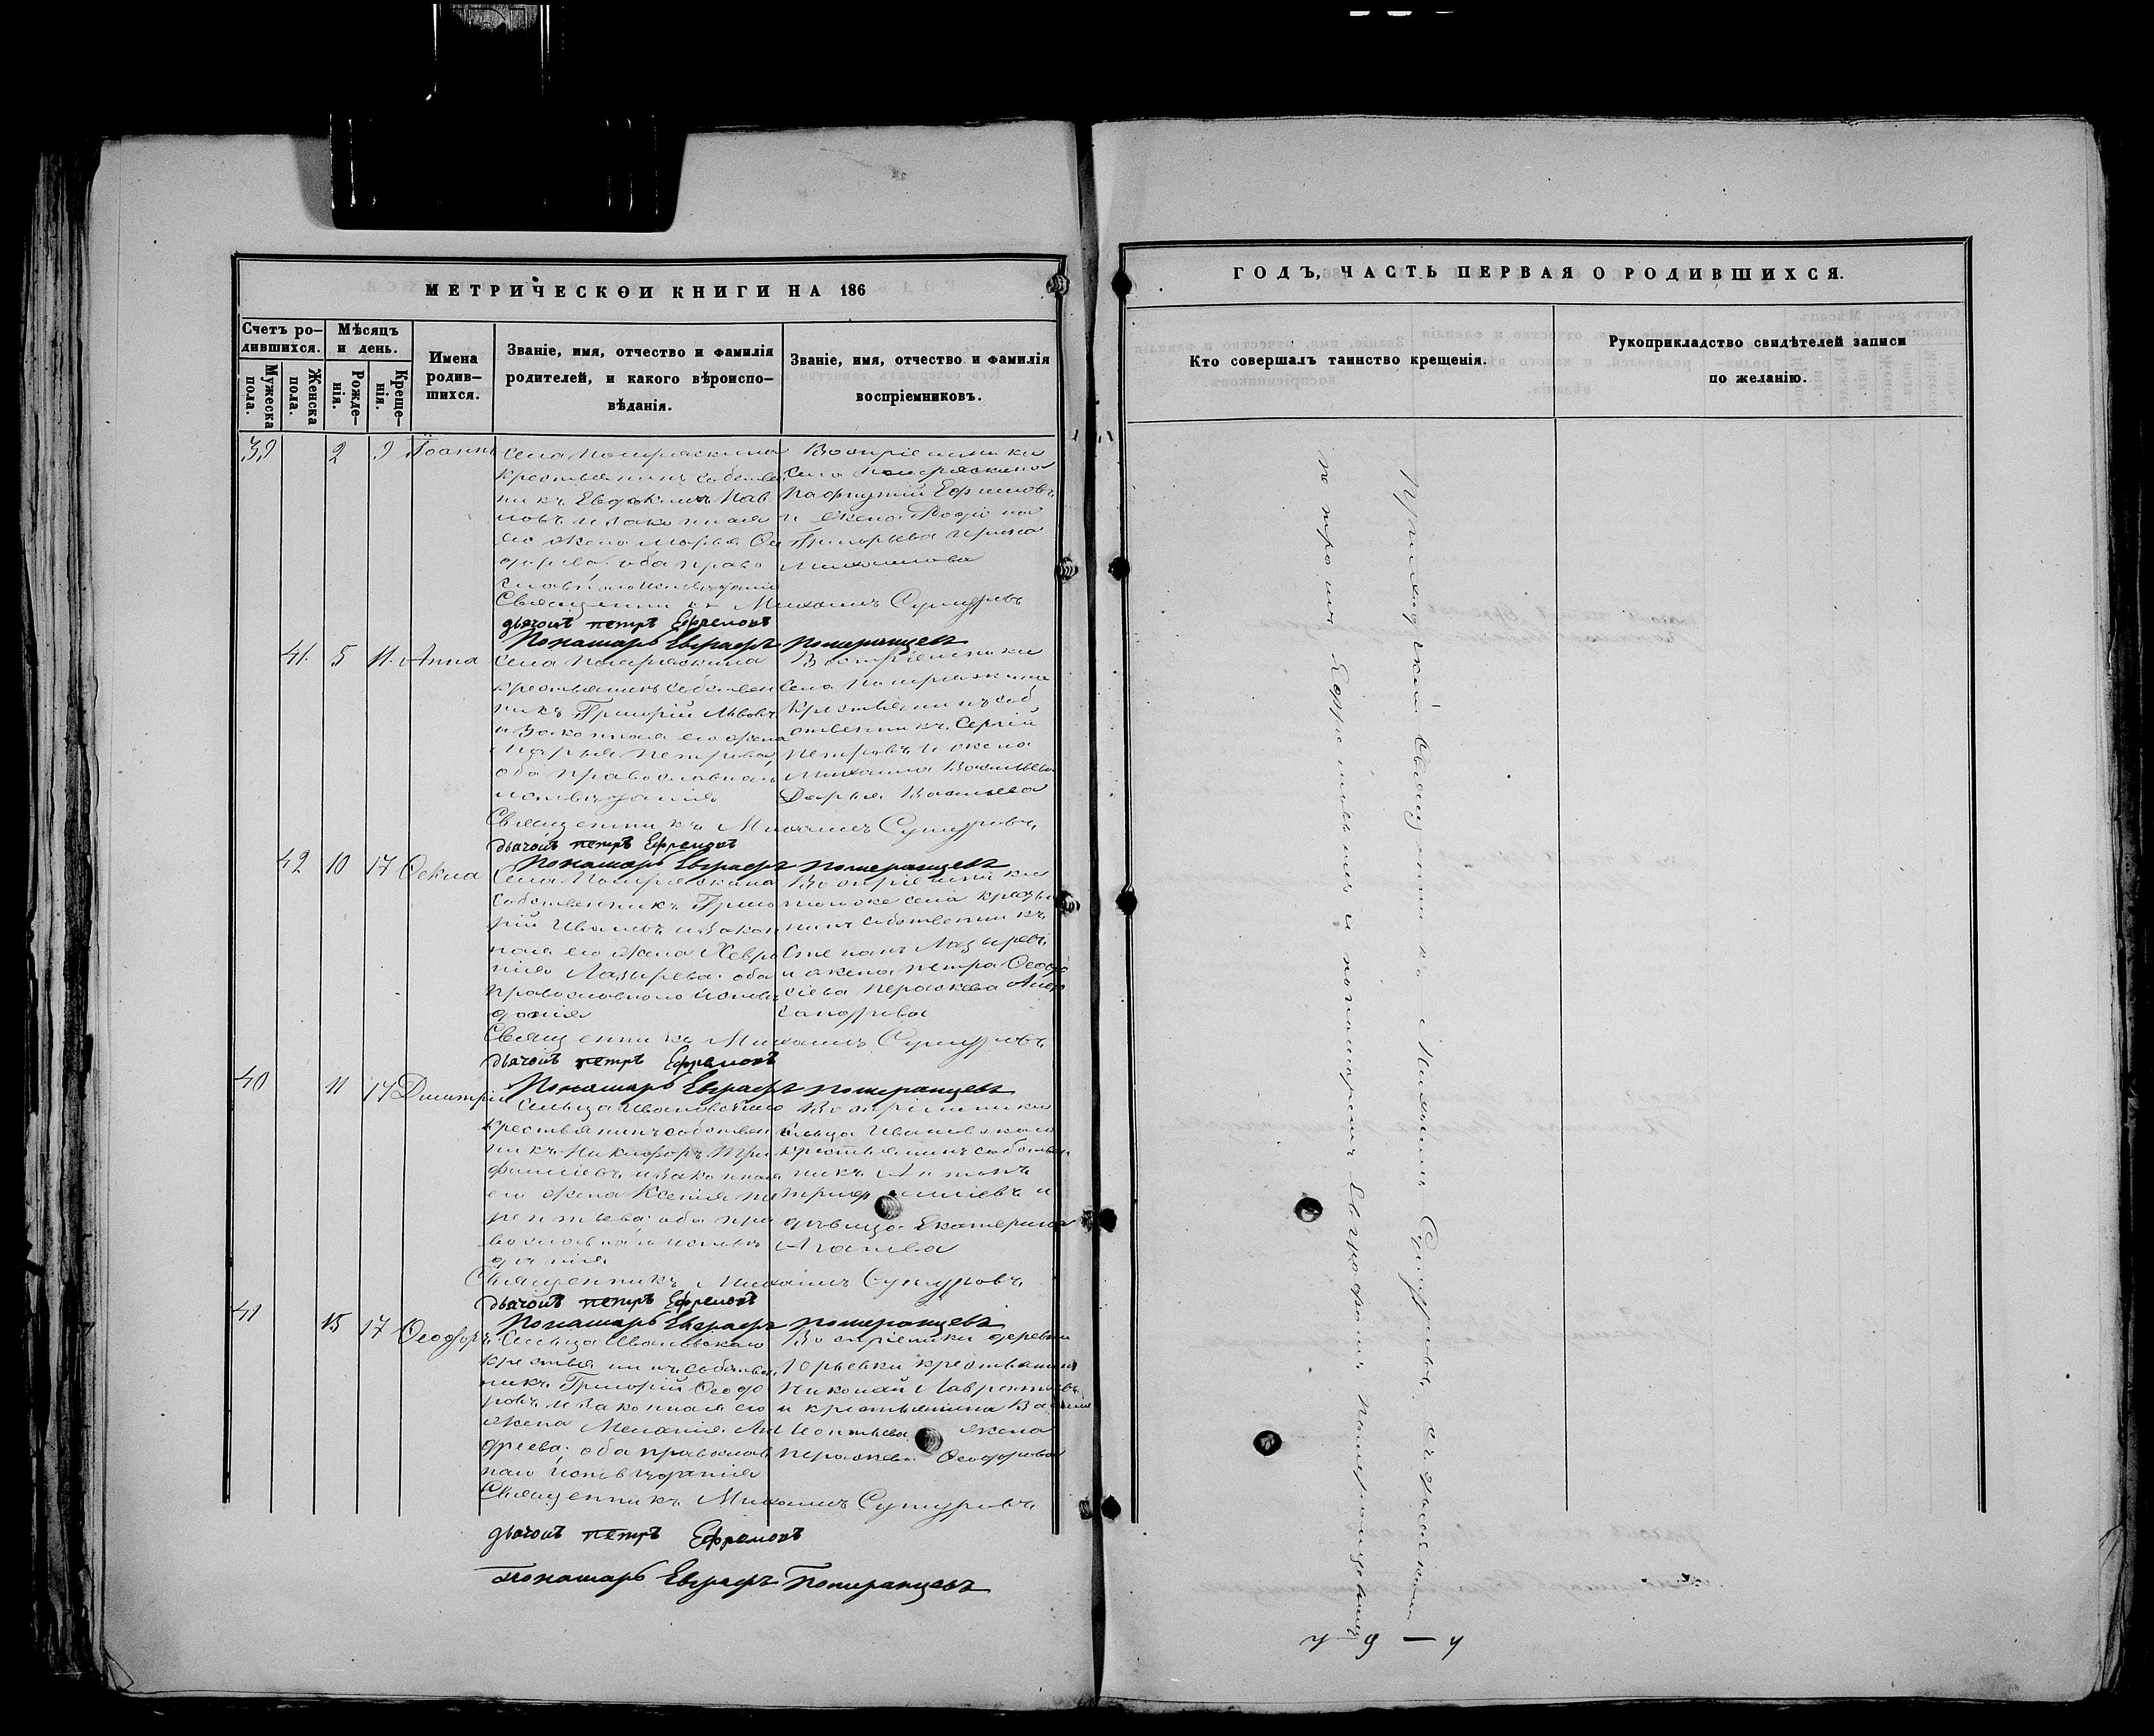 МЕТРИЧЕСКОЙ КНИГИ НА 186
Счетъ ро-
дившихся.
Мѣсяцъ
и день.
Мужеска
пола.
Женска
пола.
Рожде-
нія.
Креще-
нія.
Имена
родив-
шихся.
Званіе, имя, отчество и фамилія
родителей, и какого вѣроиспо-
вѣданія.
Званіе, имя, отчество и фамилія
воспріемниковъ.
39 2 9 Іоаннъ
Села
крестьянинъ собствен
никъ Евдокимъ Пав
ловъ и законная
его жена Марья
оба право
славнаго исповѣданія
Воспріемники
Села
Пафнутій Ефимовъ
и жена
Григорьева Ирина
Священникъ Михаилъ
дьячокъ петръ Ефремовъ
Пономарь Евграфъ померанцевъ
41. 5 11. Анна
Села
крестьянинъ собствен
никъ Григорій Львовъ
и законная его жена
Марья Петрова
оба православнаго
исповѣданія
Воспріемники
Села
крестьянинъ соб
ственникъ Сергій
Петровъ и жена
Михаила Васильева
Дарья Васильева
Священникъ Михаилъ
дьячокъ петръ Ефремовъ
Пономарь Евграфъ померанцевъ
42 10 17 Ѳекла
Села
собственникъ Григо
рій Ивановъ и закон
ная его жена Хевро
нія Лазырева оба
православнаго исповѣ
данія
Воспріемники
того же села кресть
нинъ собственникъ
Степанъ Лазыревъ
и жена петра Ѳеодо
сіева Пераскева Алек
сандрова
Священникъ Михаилъ
дьячокъ петръ Ефремовъ
Пономарь Евграфъ померанцевъ
40 11 17 Димитрій
Сельца Ивановскаго
крестьянинъ собствен
никъ Никифоръ Три
филліевъ и законная
его жена Ксенія Те
рентьева оба пра
вославнаго исповѣ
данія
Воспріемники
сельца Ивановскаго
крестьянинъ собствен
никъ Антонъ
и
дѣвица Екатерина
Агапіева
Священникъ Михаилъ
дьячокъ петръ Ефремовъ
Пономарь Евграфъ померанцевъ
41 15 17 Ѳеодоръ
Сельца Ивановскаго
крестьянинъ собствен
никъ Григорій Ѳеодо
ровъ и законная его
жена Меланія Ан
дреева оба православ
наго исповѣданія
Воспріемники деревни
Юрьевки крестьянинъ
Николай Лаврентьевъ
и крестьянина
Леонтьева жена
пераскева Ѳеодорова
Священникъ Михаилъ
дьячокъ петръ Ефремовъ
пономарь Евграфъ Померанцевъ
ГОДЪ, ЧАСТЬ ПЕРВАЯ О РОДИВШИХСЯ.
Кто совершалъ таинство крещенія.
Рукоприкладство свидѣтелей записи
по желанію.
Приходскій Священникъ Михаилъ съ дьячкомъ
петромъ Ефремовымъ и пономаремъ Евграфомъ померанцевымъ